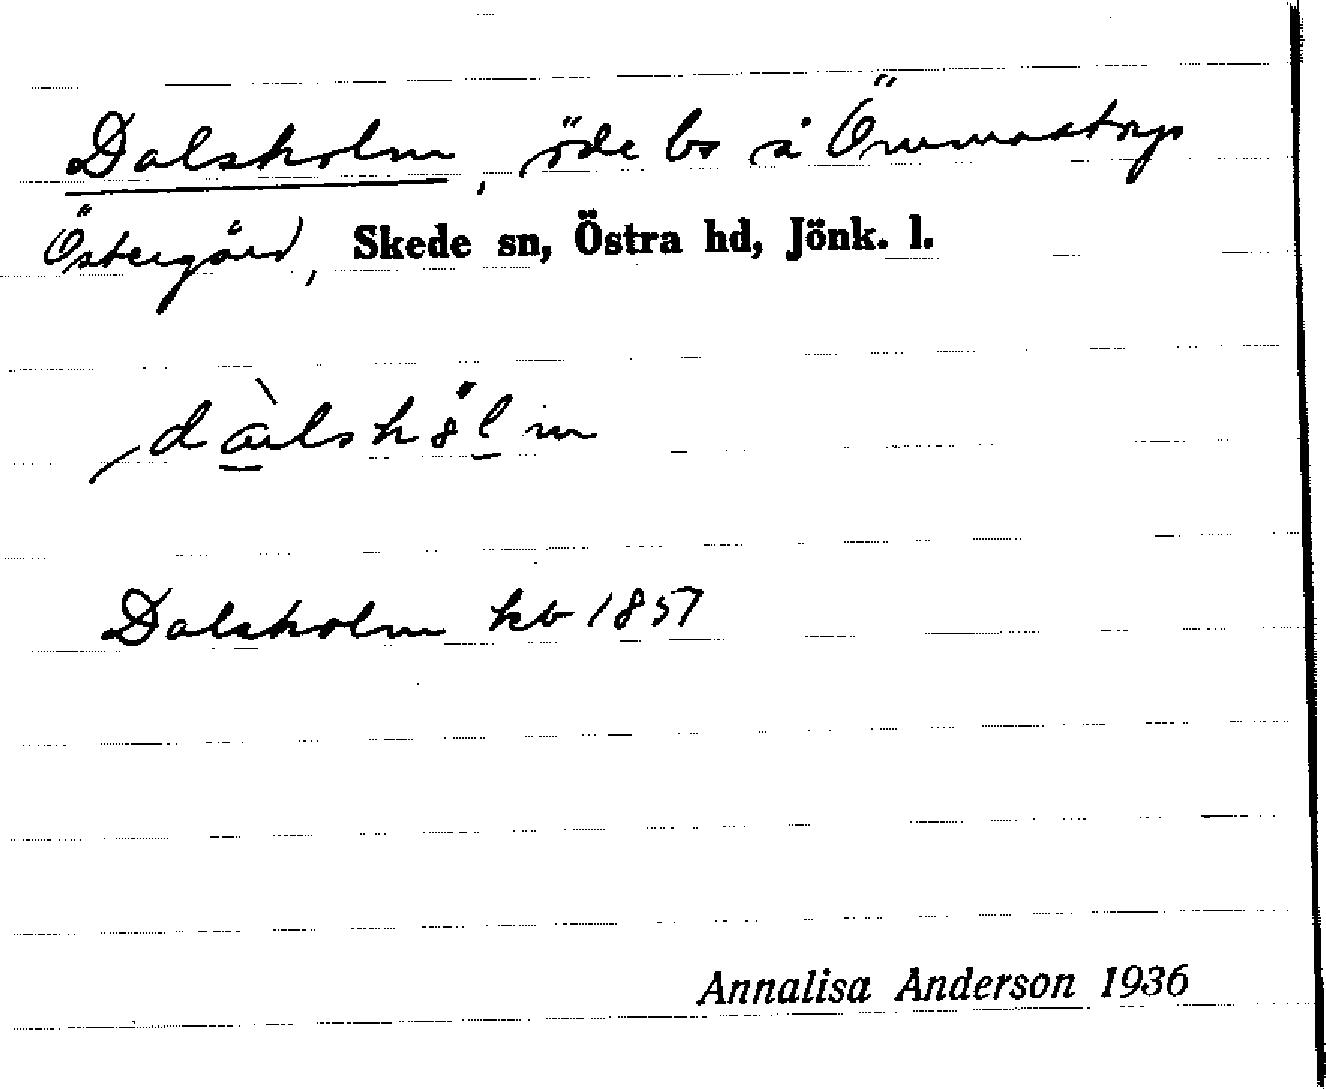 Dalsholm, öde bs å Ömmastorps
Östergård, Skede sn, Östra hd, Jönk. l.
Dalsholm kb 1857
Annalisa Anderson 1936